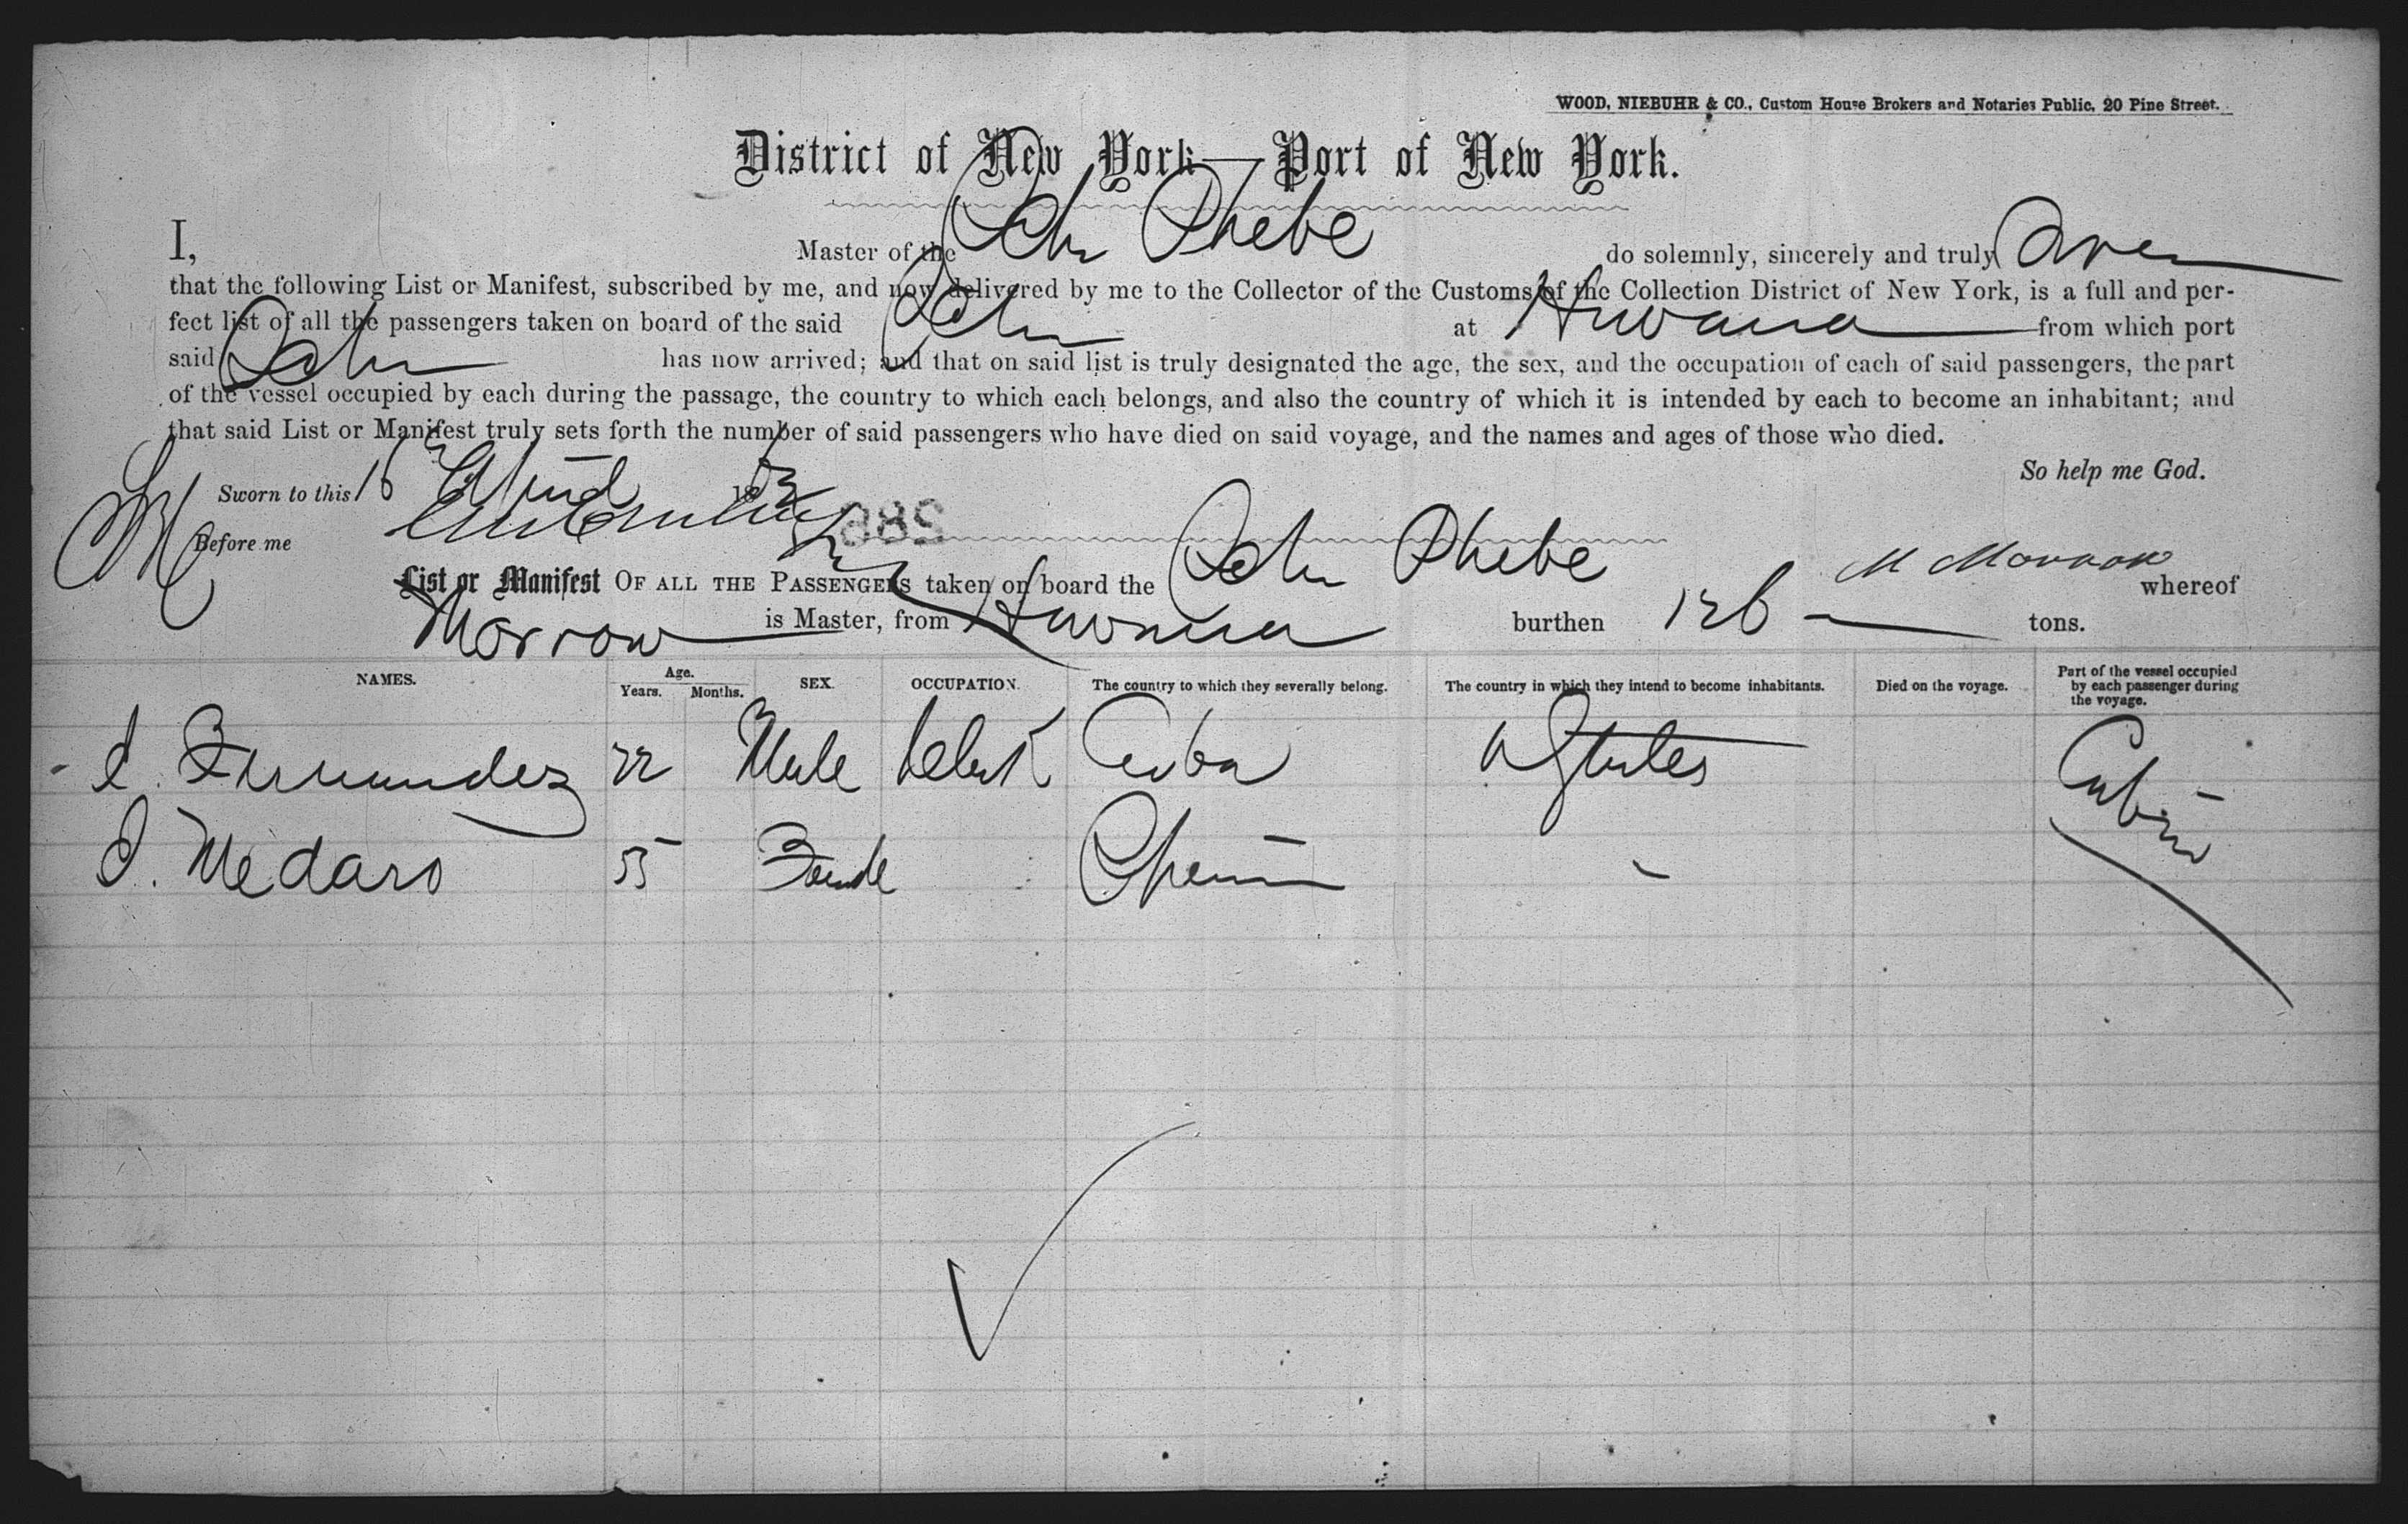 WOOD, NIEBUHR & CO., Custom House Brokers and Notaries Public, 20 Pine Street.
District of New York—Port of New York.
I, Master of the Schr Phebe do solemnly, sincerely and truly
that the following List or Manifest, subscribed by me, and now delivered by me to the Collector of the Customs of the Collection District of New York, is a full and per-
fect list of all the passengers taken on board of the said Schr at Havana from which port
said Schr has now arrived; and that on said list is truly designated the age, the sex, and the occupation of each of said passengers, the part
of the vessel occupied by each during the passage, the country to which each belongs, and also the country of which it is intended by each to become an inhabitant; and
that said List or Manifest truly sets forth the number of said passengers who have died on said voyage, and the names and ages of those who died.
So help me God.
Sworn to this 16 April 18
Before me
288
M Morrow
List or Manifest OF ALL THE PASSENGERS taken on board the Schr Phebe whereof
Morrow is Master, from Havana burthen 126 tons.
NAMES. Age. Years. Months. SEX. OCCUPATION. The country to which they severally belong. The country in which they intend to become inhabitants. Died on the voyage. Part of the vessel occupied by each passenger during the voyage.
I. Fernandez 22 Male Clerk Cuba U States Cabin
I. Medaro 55 Spain